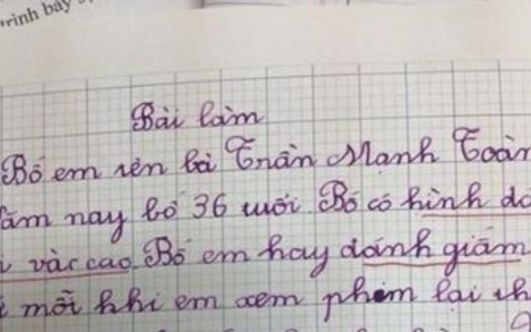 trình bày
Bài làm
Bố em tên là Trần Mạnh Toàn
năm nay bố 36 tuổi. Bố có hình dá
vàc cao. Bố em hay dánh giăm
mỗi khi em xem phim lại th